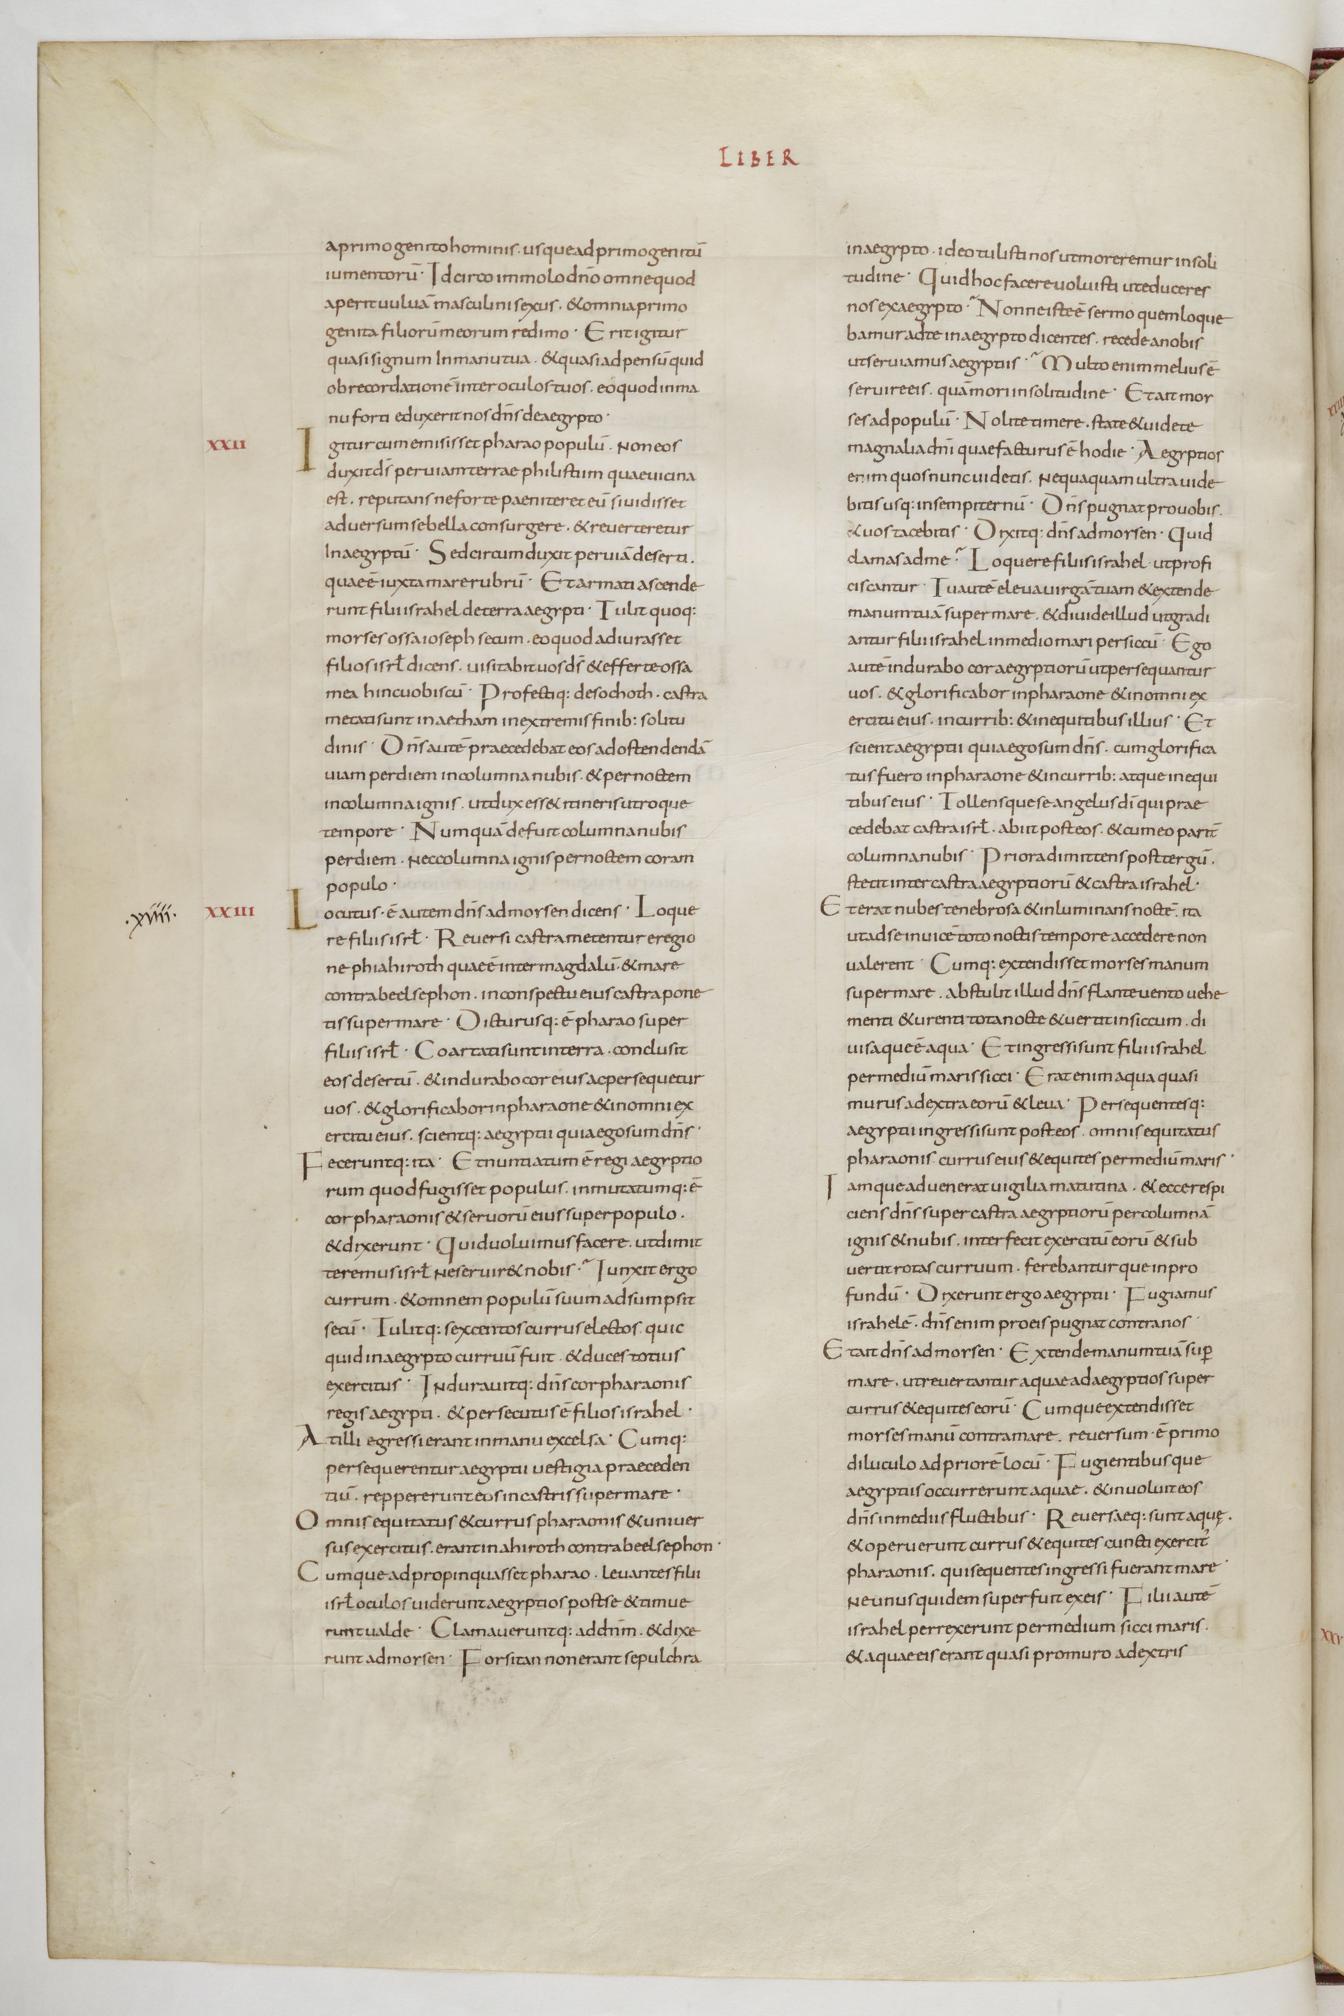 LIBER
a primogenito hominis. usque ad primogenitū
iumentorū. Idcirco immolo dño omne quod
aperit uuluā masculini sexus. & omnia primo
genita filiorū meorum redimo. Erit igitur
quasi signum In manu tua. & quasi adpensū quid
ob recordationē inter oculos tuos. eo quod in ma
nu forti eduxerit nos dñs de aegypto.
XXII
Igitur cum emisisset pharao populū. Non eos
duxit dš per uiam terrae philistiim quae uicina
est. reputans ne forte paeniteret eū si uidisset
aduersum se bella consurgere. & reuerteretur
In aegyptū. Sed circumduxit per uiā deserti.
quae ē iuxta mare rubrū. Et armati ascende
runt filii israhel de terra aegypti. Tulit quoq:
moyses ossa ioseph secum. eo quod adiurasset
filios isrł dicens. uisitabit uos dš & efferte ossa
mea hinc uobiscū. Profectiq: de sochoth. castra
metati sunt in aetham in extremis finib: solitu
dinis. Dñs autē praecedebat eos ad ostendendā
uiam per diem in columna nubis. & per noctem
in columna ignis. ut dux ess& itineris utroque
tempore. Numquā defuit columna nubis
per diem. Nec columna ignis per noctem coram
populo.
.xviiii. XXIII
Locutus. ē autem dñs ad moysen dicens. Loque
re filiis isrł. Reuersi castrametentur e regio
ne phiahiroth quae ē inter magdalū. & mare
contra beelsephon. in conspectu eius castra pone
tis super mare. Dicturusq: ē pharao super
filiis isrł. Coartati sunt in terra. conclusit
eos desertū. & indurabo cor eius ac persequetur
uos. & glorificabor in pharaone & in omni ex
ercitu eius. scientq: aegyptii quia ego sum dñs.
Feceruntq: ita. Et nuntiatum ē regi aegyptio
rum quod fugisset populus. inmutatumq: ē
cor pharaonis & seruorū eius super populo.
& dixerunt. Quid uoluimus facere. ut dimit
teremus isrł Ne seruir& nobis. Iunxit ergo
currum. & omnem populū suum adsumpsit
secū. Tulitq: sexcentos currus electos. quic
quid in aegypto curruū fuit. & duces totius
exercitus. Indurauitq: dñs cor pharaonis
regis aegypti. & persecutus ē filios israhel.
At illi egressi erant in manu excelsa. Cumq:
persequerentur aegyptii uestigia praeceden
tiū. reppererunt eos in castris super mare.
Omnis equitatus & currus pharaonis & uniuer
sus exercitus. erant in ahiroth contra beelsephon.
Cumque adpropinquasset pharao. Leuantes filii
isrł oculos uiderunt aegyptios post se & timue
runt ualde. Clamaueruntq: ad dñm. & dixe
runt ad moysen. Forsitan non erant sepulchra
in aegypto. ideo tulisti nos ut moreremur in soli
tudine. Quid hoc facere uoluisti ut educeres
nos ex aegypto. Nonne iste ē sermo quem loque
bamur ad te in aegypto dicentes. recede a nobis
ut seruiamus aegyptiis. Multo enim melius ē
seruire eis. quā mori in solitudine. Et ait moy
ses ad populū. Nolite timere. state & uidete
magnalia dñi quae facturus ē hodie. Aegyptios
enim quos nunc uidetis. Nequaquam ultra uide
bitis usq: in sempiternū. Dñs pugnat pro uobis.
& uos tacebitis. Dixitq: dñs ad moysen. Quid
clamas ad me. Loquere filiis israhel. ut profi
ciscantur. Tu autē eleua uirgā tuam & extende
manum tuā super mare. & diuide illud ut gradi
antur filii israhel in medio mari per siccū. Ego
autē indurabo cor aegyptiorū ut persequantur
uos. & glorificabor in pharaone & in omni ex
ercitu eius. in currib: & in equitibus illius. Et
scient aegyptii quia ego sum dñs. cum glorifica
tus fuero in pharaone & in currib: atque in equi
tibus eius. Tollensque se angelus di qui prae
cedebat castra isrł. abiit post eos. & cum eo parit̄
columna nubis. Priora dimittens post tergū.
stetit inter castra aegyptiorū & castra israhel.
Et erat nubes tenebrosa & inluminans noctē. ita
ut ad se inuicē toto noctis tempore accedere non
ualerent. Cumq: extendisset moyses manum
super mare. abstulit illud dñs flante uento uehe
menti & urenti tota nocte & uertit in siccum. di
uisaque ē aqua. Et ingressi sunt filii israhel
per mediū maris sicci. Erat enim aqua quasi
murus a dextra eorū & leua. Persequentesq:
aegyptii ingressi sunt post eos. omnis equitatus
pharaonis. currus eius & equites per mediū maris.
Iamque aduenerat uigilia matutina. & ecce respi
ciens dñs super castra aegyptiorū per columnā
ignis & nubis. interfecit exercitū eorū & sub
uertit rotas curruum. ferebanturque in pro
fundū. Dixerunt ergo aegyptii. Fugiamus
israhelē. dñs enim pro eis pugnat contra nos.
Et ait dñs ad moysen. Extende manum tuā sup̄
mare. ut reuertantur aquae ad aegyptios super
currus & equites eorū. Cumque extendisset
moyses manū contra mare. reuersum. ē primo
diluculo ad priorē locū. Fugientibusque
aegyptiis occurrerunt aquae. & inuoluit eos
dñs in mediis fluctibus. Reuersaeq: sunt aquę.
& operuerunt currus & equites cuncti exercit̄
pharaonis. qui sequentes ingressi fuerant mare.
Ne unus quidem superfuit ex eis. Filii autē
israhel perrexerunt per medium sicci maris.
& aquae eis erant quasi pro muro a dextris